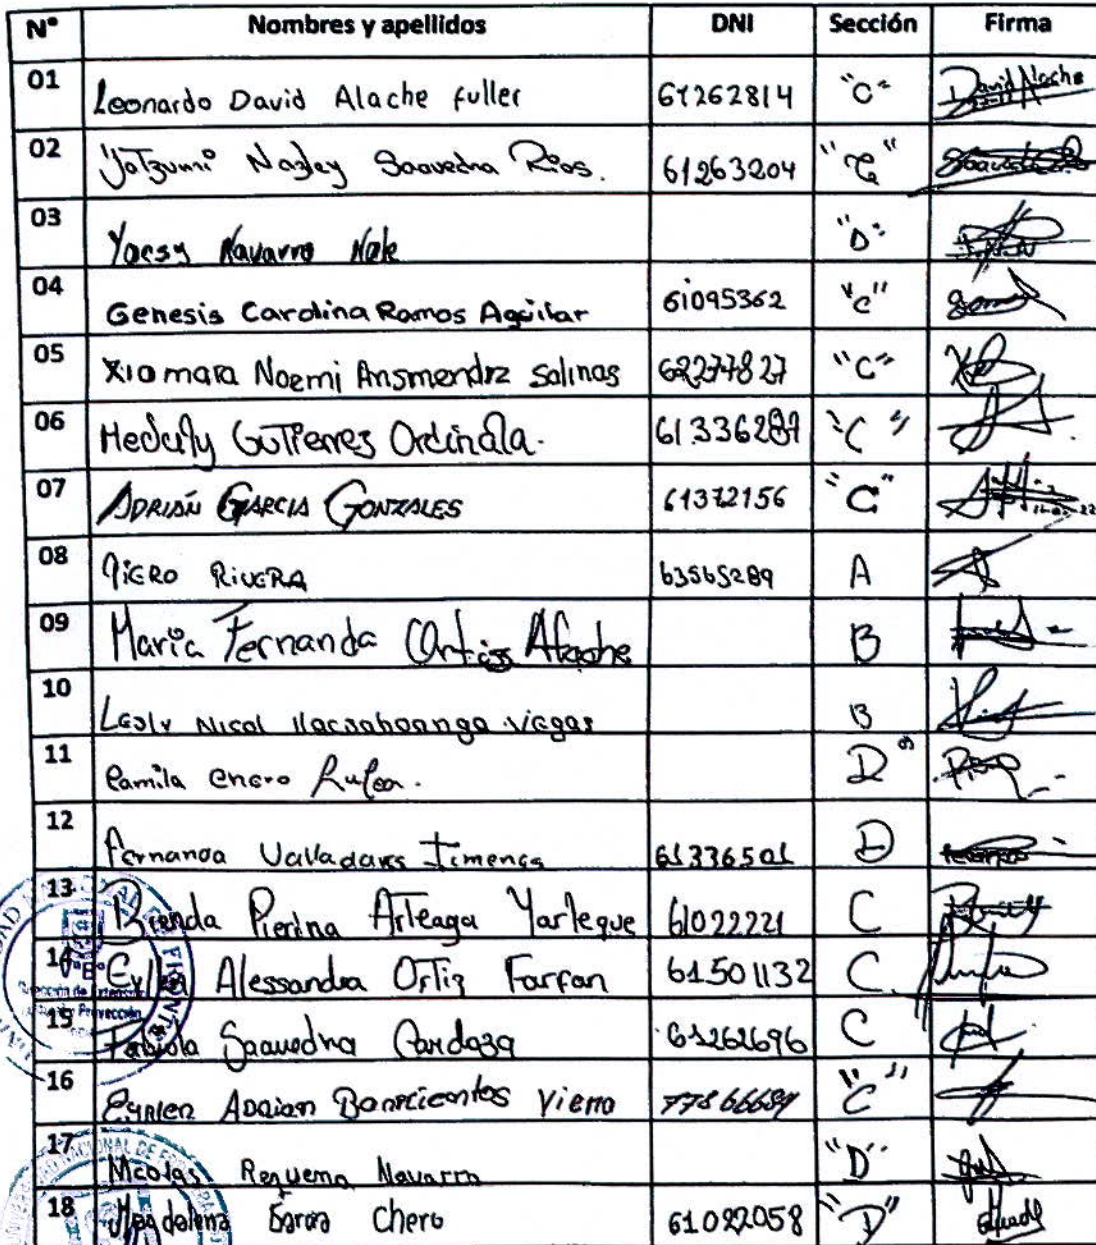 N° Nombres y apellidos DNI Sección Firma
01 Leonardo David Alache fuller 61262814 "C" David Alache
02 Nazley Saavedra Rios. 61263204 "C" Saavedra
03 Yacsy Navarro Nole "D"
04 Genesis Carolina Ramos Aguilar 61095362 "C"
05 Xiomara Noemi Salinas 62277827 "C"
06 Gutierrez Ordinola. "C"
07 ADRIÁN GARCIA GONZALES 61372156 "C"
08 PIERO RIVERA 63565289 A
09 Maria Fernanda Ortiz Alache B
10 Lesly Nicol B
11 Camila D
12 Fernanda Valladares Jimenes 61336501 D
13 Brenda Pierina Arteaga Yarleque 61022221 C
14 Alessandra Ortiz Farfan 61501132 C
15 Fabiola Saavedra Cardoza 61262696 C
16 Adrian Barrientos "C"
17 Nicolas Requena Navarro "D"
18 Magdalena Chero 61022058 "D"